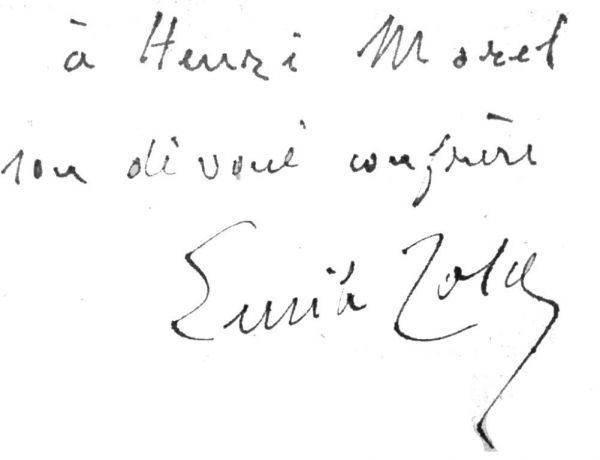 à Henri Morel
son dévoué confrère
Emile Zola